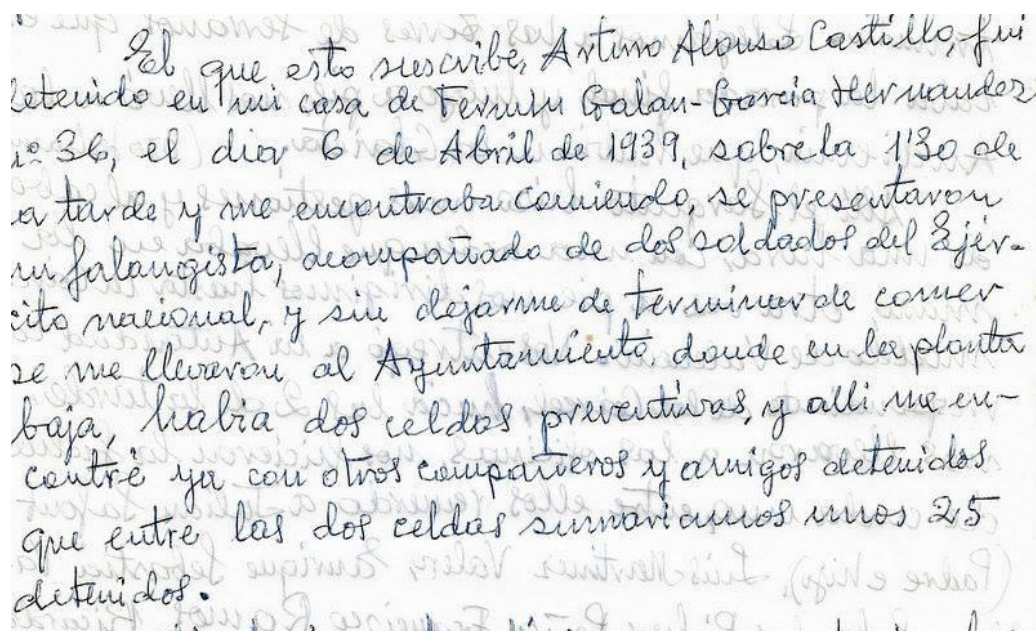 El que esto suscribe, Arturo Alonso Castillo, fui
detenido en mi casa de Fermin Galan-Garcia Hernandez
nº 36, el dia 6 de Abril de 1939, sobre la 1'30 de
la tarde y me encontraba comiendo, se presentaron
un falangista, acompañado de dos soldados del Ejér-
cito nacional, y sin dejarme de terminar de comer
se me llevaron al Ayuntamiento, donde en la planta
baja, habia dos celdas preventivas, y alli me en-
contré ya con otros compañeros y amigos detenidos
que entre las dos celdas sumariamos unos 25
detenidos.